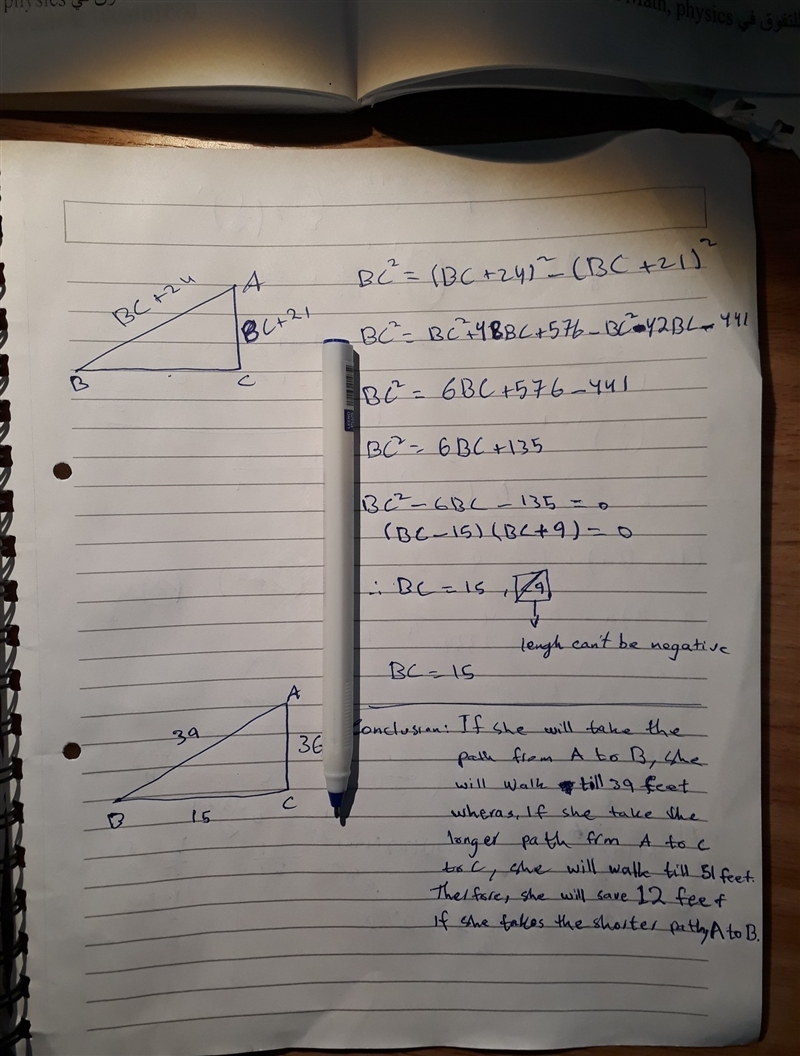 physics في
Math, physics للتفوق في
BC+24
A
BC+21
B
C
BC² = (BC+24)² - (BC+21)²
BC² = BC²+48BC+576-BC²-42BC-441
BC² = 6BC+576-441
BC² = 6BC+135
BC²-6BC-135=0
(BC-15)(BC+9)=0
∴ BC=15, -9
lengh can't be negative
BC=15
A
39
36
B
15
C
Conclusion: If she will take the
path from A to B, she
will walk till 39 feet
wheras, If she take the
longer path frm A to c
to C, she will walk till 51 feet.
Therfore, she will save 12 feet
if she takes the shorter path, A to B.